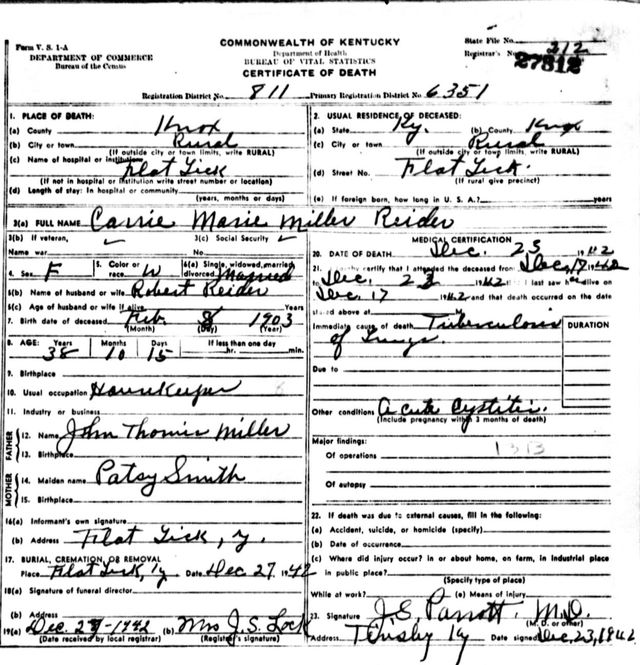 Form V. S. 1-A
DEPARTMENT OF COMMERCE
Bureau of the Census
COMMONWEALTH OF KENTUCKY
Department of Health
BUREAU OF VITAL STATISTICS
CERTIFICATE OF DEATH
State File No.
Registrar's No. 212
27312
Registration District No. 811 Primary Registration District No. 6351
1. PLACE OF DEATH:
(a) County Knox
(b) City or town Rural
(If outside city or town limits, write RURAL)
(c) Name of hospital or institution:
Flat Lick
(If not in hospital or institution write street number or location)
(d) Length of stay: In hospital or community
(years, months or days)
2. USUAL RESIDENCE OF DECEASED:
(a) State Ky. (b) County Knox
(c) City or town Rural
(If outside city or town limits, write RURAL)
(d) Street No. Flat Lick.
(If rural give precinct)
(e) If foreign born, how long in U. S. A.? Years
3(a) FULL NAME Carrie Marie Miller Reider
3(b) If veteran,
Name war
3(c) Social Security
No.
4. Sex F
5. Color or
race. W
6(a) Single, widowed, married
divorced Married
6(b) Name of husband or wife Robert Reider
6(c) Age of husband or wife if alive Years
7. Birth date of deceased Feb. 8 1903
(Month) (Day) (Year)
8. AGE: Years Months Days If less than one day
38 10 15 hr. min.
9. Birthplace
10. Usual occupation Housekeeper
11. Industry or business
FATHER
12. Name John Thomas Miller
13. Birthplace
MOTHER
14. Maiden name Patsy Smith
15. Birthplace
16(a) Informant's own signature
(b) Address Flat Lick, y.
17. BURIAL, CREMATION, OR REMOVAL
Place Flat Lick, Ky Date Dec 27 1942
18(a) Signature of funeral director
(b) Address
19(a) Dec. 1942 (b) Mrs J. S. Lock
(Date received by local registrar) (Registrar's signature)
MEDICAL CERTIFICATION
20. DATE OF DEATH Dec. 23 1942
21. I hereby certify that I attended the deceased from Dec. 17 1942
to Dec. 23 1942 that I last saw her alive on
Dec. 17 1942 and that death occurred on the date
stated above at M
Immediate cause of death Tuberculosis
of Lungs
DURATION
Due to
Other conditions Acute Cystitis.
(Include pregnancy within 3 months of death)
Major findings:
13B
Of operations
Of autopsy
22. If death was due to external causes, fill in the following:
(a) Accident, suicide, or homicide (specify)
(b) Date of occurrence
(c) Where did injury occur? in or about home, on farm, in industrial place
in public place?
(Specify type of place)
While at work? (e) Means of injury
23. Signature J. S. Parrott. M.D.
(M. D. or other)
Address Tinsley Ky Date signed Dec, 23, 1942